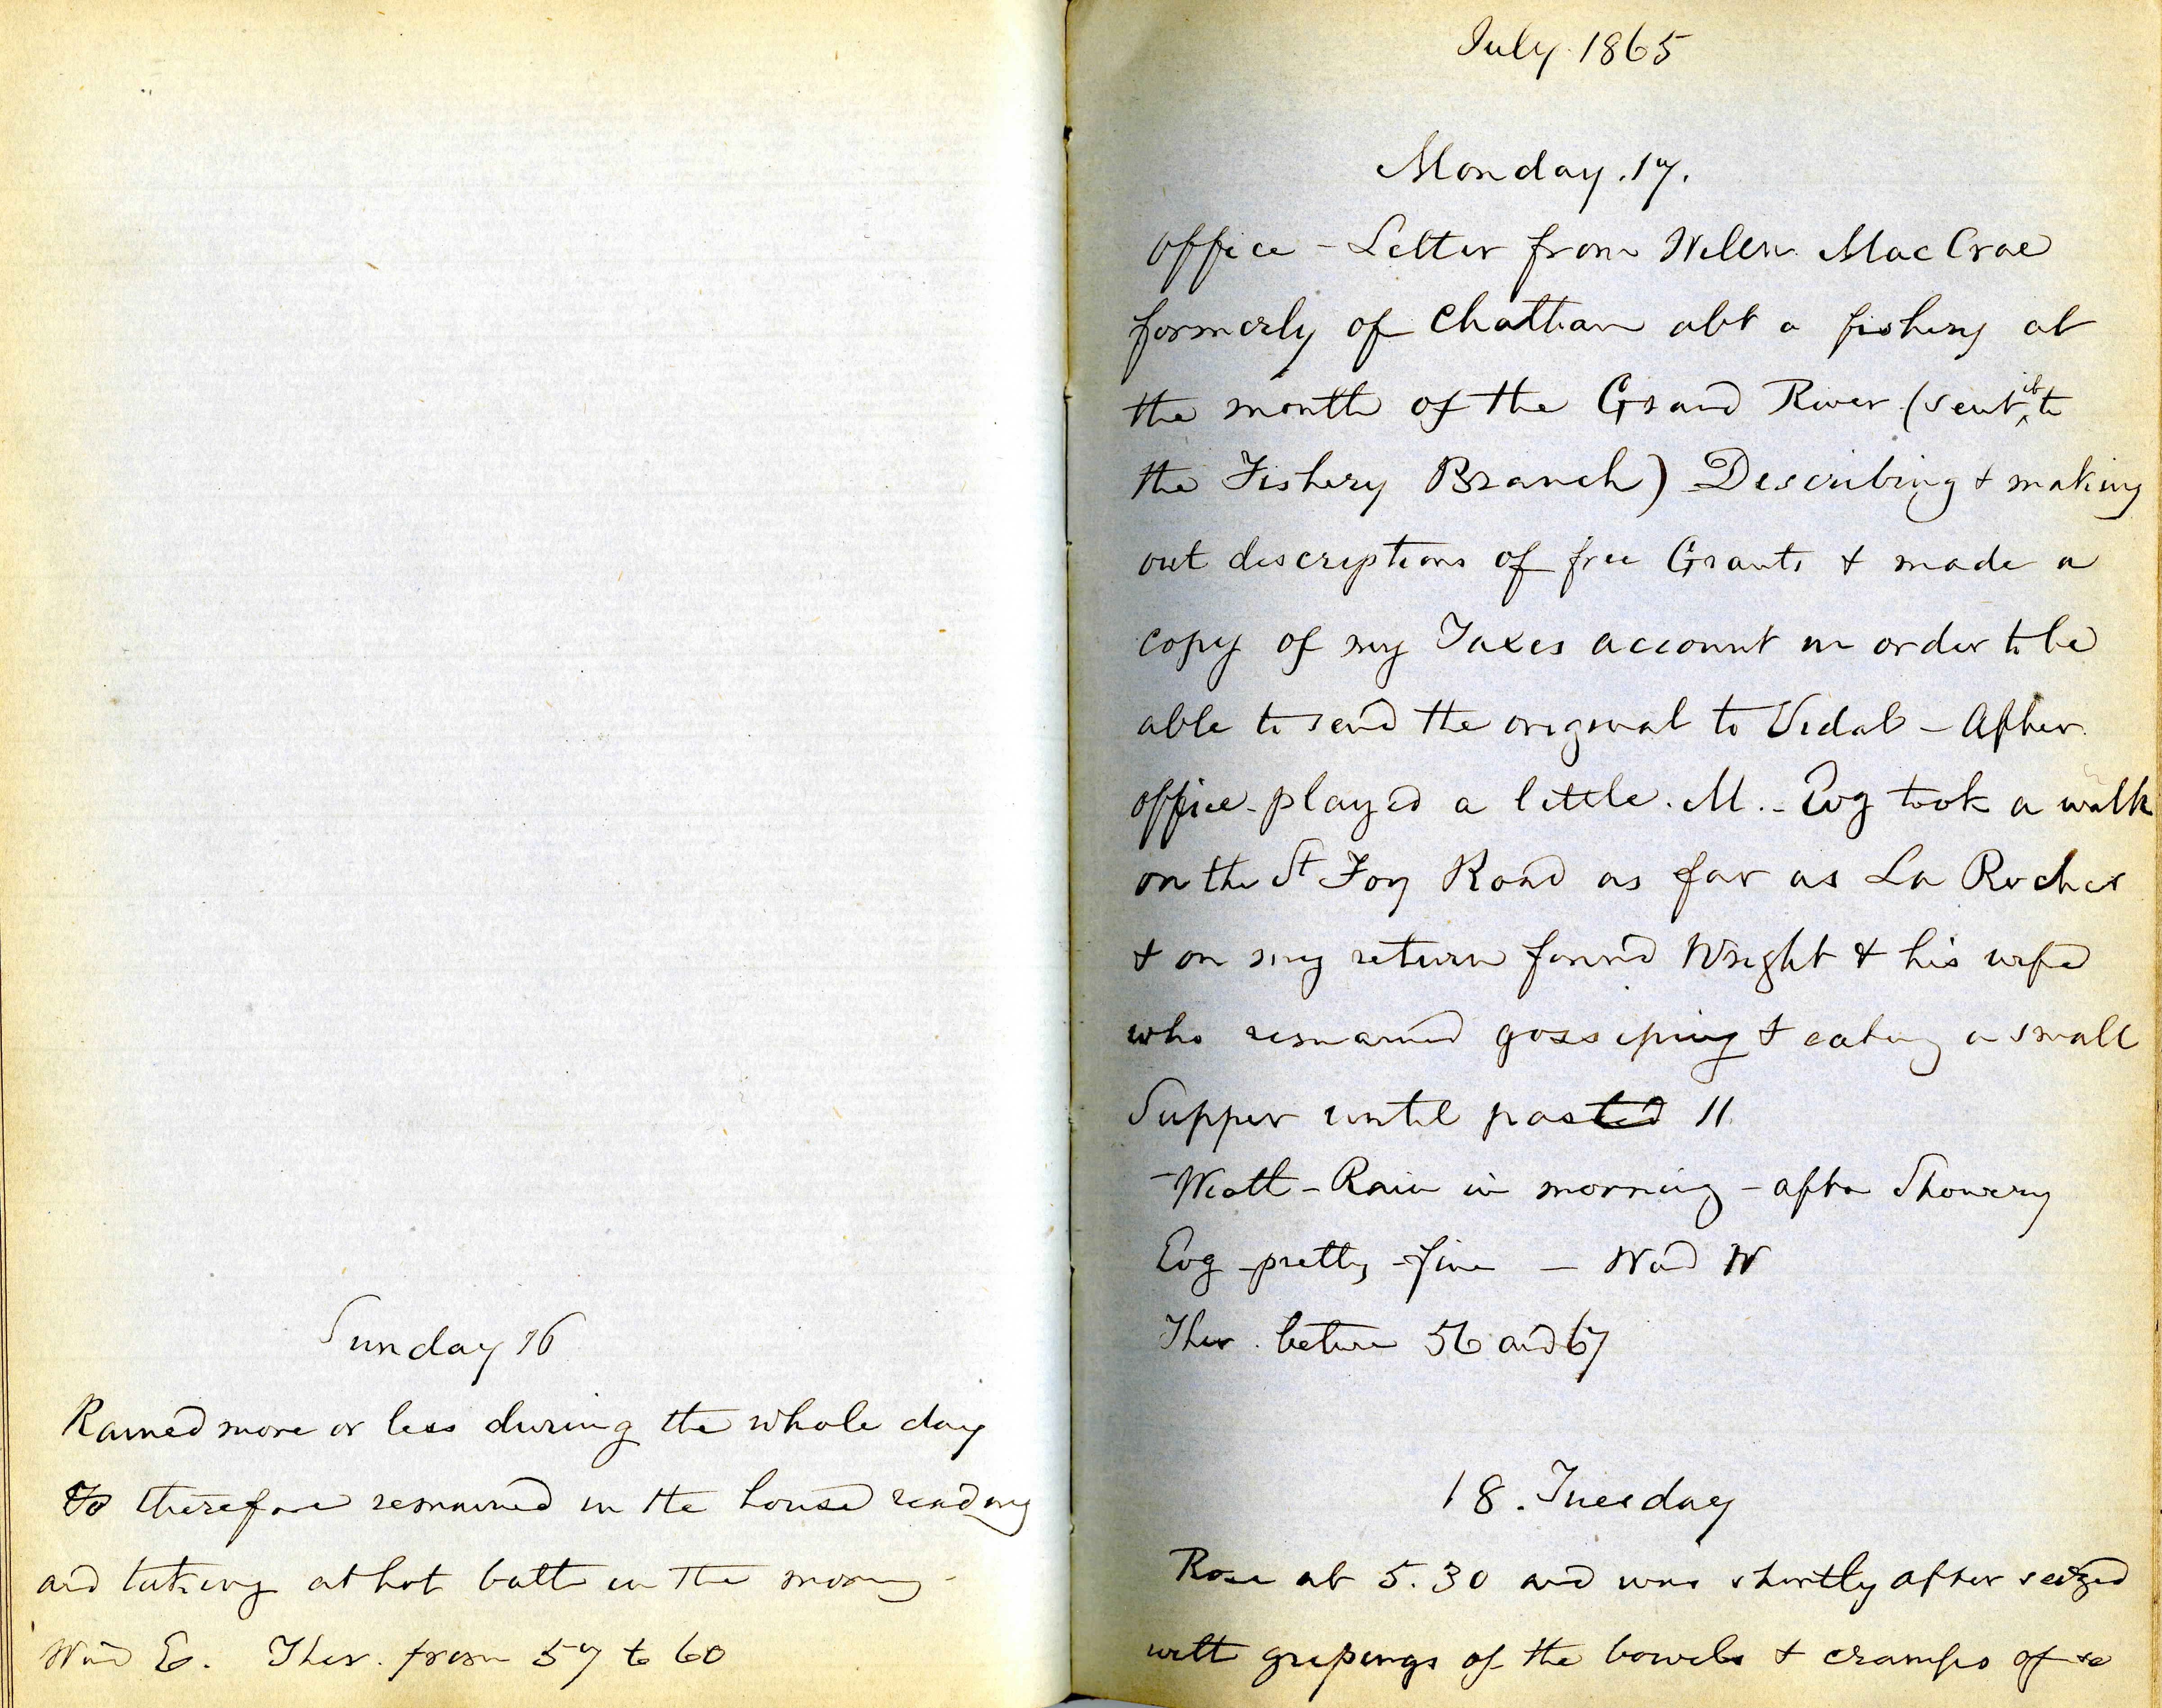 Sunday 16
Rained more or less during the whole day
therefore remained in the house reading
and taking a hot bath in the morning -
Wind E. Ther. from 57 to 60
July 1865
Monday. 17.
Office - Letter from MacCrae
formerly of Chatham abt a fishery at
the mouth of the Grand River (sent it to
the Fishery Branch) Describing & making
out descriptions of free Grants & made a
copy of my Taxes account in order to be
able to send the original to Vidal - After
office played a little. M. - Evg took a walk
on the St Foy Road as far as La Roches
& on my return found Wright & his wife
who remained gossiping & eating a small
Supper until past 11
- Weath - Rain in morning - afte Showery
Evg - pretty - fine - Wind W
Ther. betwn 56 and 67
18. Tuesday
Rose at 5.30 and was shortly after seized
with gripings of the bowels & cramps of